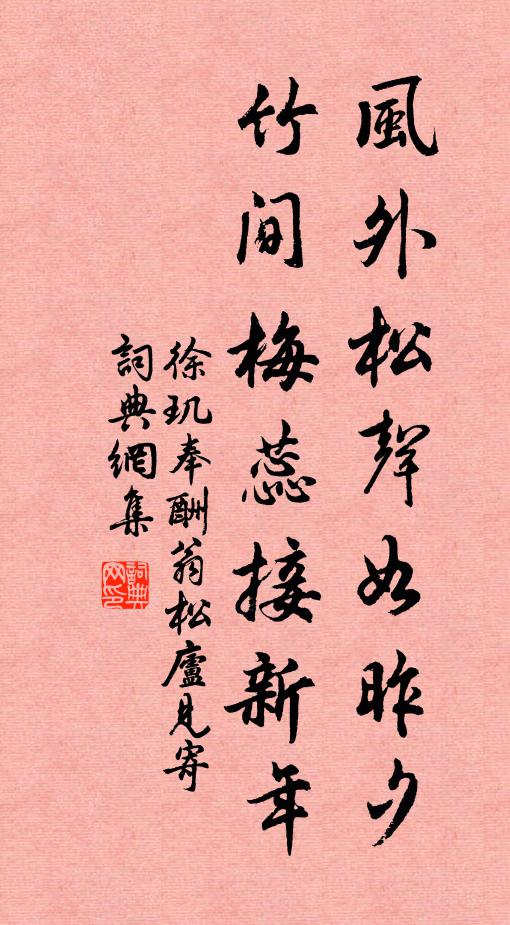 風外松聲如昨夕
竹間梅蕊接新年
徐玑奉酬翁松廬見寄
詞典網集
詞典網印